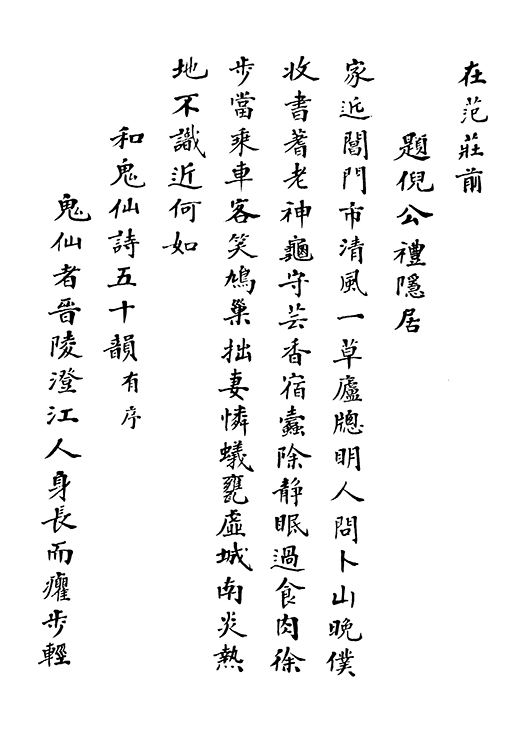 在范莊前
題倪公禮隱居
家近閶門市清風一草廬牕明人問卜山晚僕
收書蓍老神龜守芸香宿蠹除静眠過食肉徐
步當乘車客笑鳩巢拙妻憐蟻甕虛城南炎熱
地不識近何如
和鬼仙詩五十韻有序
鬼仙者晉陵澄江人身長而癯步輕